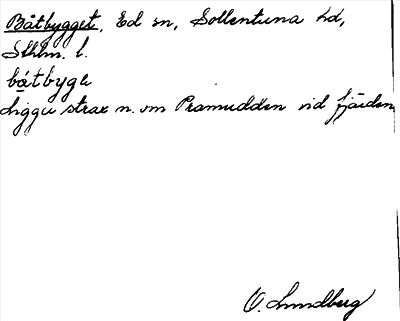 Båtbygget, Ed sn, Sollentuna hd,
Sthlm. l.
båtbyge
Ligger strax n. om Pramudden vid fjärden
O. Lundberg